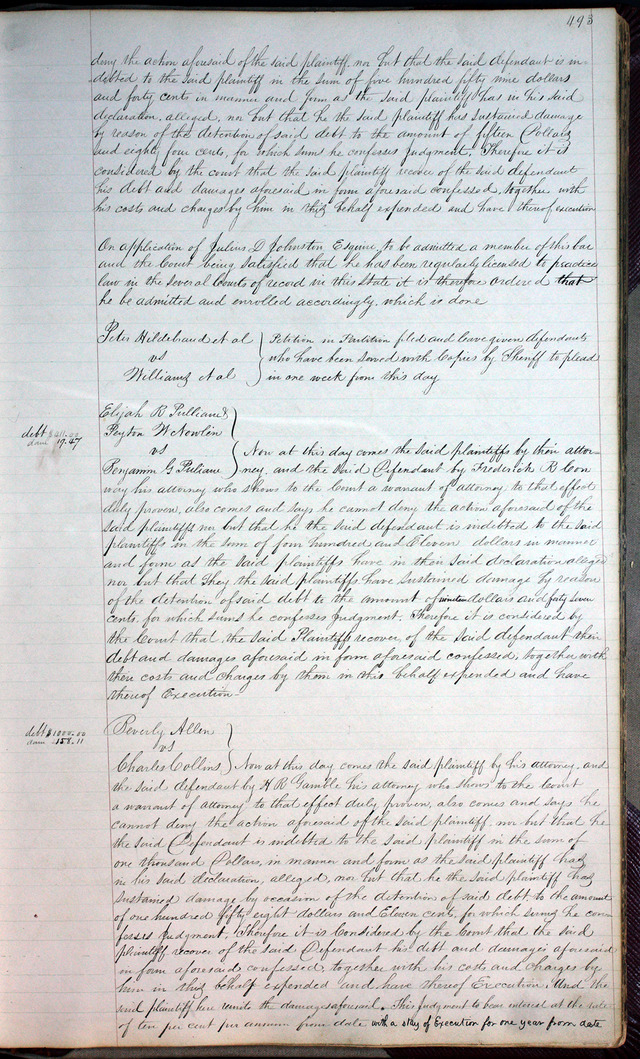 493
deny the action aforesaid of the said plaintiff nor but that the said defendant is in-
debted to the said plaintiff in the sum of five hundred fifty nine dollars
and forty cents in manner and form as the said plaintiff has in his said
declaration, alleged, nor but that he the said plaintiff has sustained damage
by reason of the detention of said debt to the amount of fifteen Dollars
and eighty four cents, for which sums he confesses judgment. Therefore it is
considered by the court that the said plaintiff recover of the said defendant
his debt and damages aforesaid in form aforesaid confessed, together with
his costs and charges by him in this behalf expended and have thereof execution
On application of Julius D Johnston Esquire, to be admitted a member of this bar
and the Court being satisfied that he has been regularly licensed to practice
law in the several Courts of record in this State it is therefore ordered that
he be admitted and enrolled accordingly, which is done
Peter Hildebrand et al
vs
Williams et al
Petition in Partition filed and leave given defendants
who have been served with Copies by Sheriff to plead
in one week from this day
debt
dam 19.47
Elijah B Pulliam &
Peyton W Nowlin
vs
Benjamin G Pulliam
Now at this day comes the said plaintiffs by their attor-
ney, and the said Defendant by Frederick R Con
way his attorney who shows to the Court a warrant of attorney, to that effect
duly proven, also comes and says he cannot deny the action aforesaid of the
said plaintiffs nor but that he the said defendant is indebted to the said
plaintiffs in the sum of four hundred and Eleven dollars in manner
and form as the said plaintiffs have in their said declaration alleged
nor but that they the said plaintiffs have sustained damage by reason
of the detention of said debt to the amount of nineteen dollars and forty seven
cents, for which sums he confesses judgment. Therefore it is considered by
the Court that, the said Plaintiffs recover, of the said defendant their
debt and damages aforesaid in form aforesaid confessed, together with
their costs and charges by them in this behalf expended and have
thereof Execution-
debt $1000.00
dam 158.11
Beverly Allen
vs
Charles Collins
Now at this day comes the said plaintiff by his attorney, and
the said defendant by H R Gamble his attorney who shows to the Court
a warrant of attorney to that effect duly proven, also comes and says he
cannot deny the action aforesaid of the said plaintiff, nor but that he
the said Defendant is indebted to the said plaintiff in the sum of
one thousand Dollars, in manner and form as the said plaintiff has
in his said declaration, alleged, nor but that he the said plaintiff has
sustained damage by occasion of the detention of said debt, to the amount
of one hundred fifty eight dollars and Eleven cents, for which sums he con
fesses judgment. Therefore it is Considered by the Court that the said
plaintiff recover of the said Defendant his debt and damages aforesaid
in form aforesaid confessed, together with his costs and charges by
him in this behalf expended and have thereof Execution. And the
said plaintiff here remits the damages aforesaid. This judgment to bear interest at the rate
of ten per cent per annum from date with a stay of Execution for one year from date